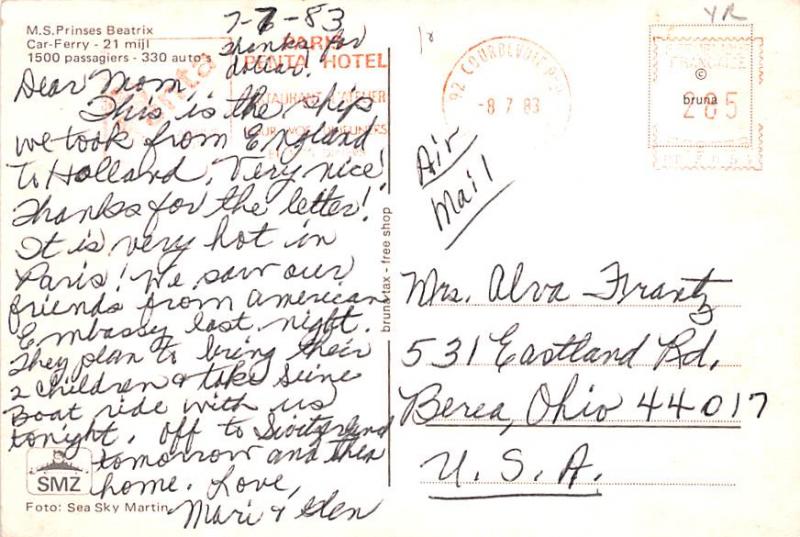 M.S.Prinses Beatrix
Car-Ferry - 21 mijl
1500 passagiers - 330 auto's
7-7-83
Thanks for
dollar!
PARIS
PENTA HOTEL
penta
Dear Mom,
This is the ship
we took from England
to Holland. Very nice!
Thanks for the letter!
It is very hot in
Paris! We saw our
friends from American
Embassy last night.
They plan to bring their
2 children & take Seine
Boat ride with us
tonight. Off to Switzerland
tomorrow and then
home. Love,
Mari & Glen
SMZ
Foto: Sea Sky Martin
bruna tax - free shop
92 COURBEVOIE P.PAL
-8 7 83
YR
REPUBLIQUE
FRANCAISE
©
bruna
205
Air
Mail
Mrs. Alva Frantz
531 Eastland Rd.
Berea, Ohio 44017
U.S.A.